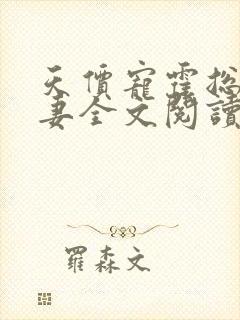 天價寵霆總
妻全文閱讀
羅森文